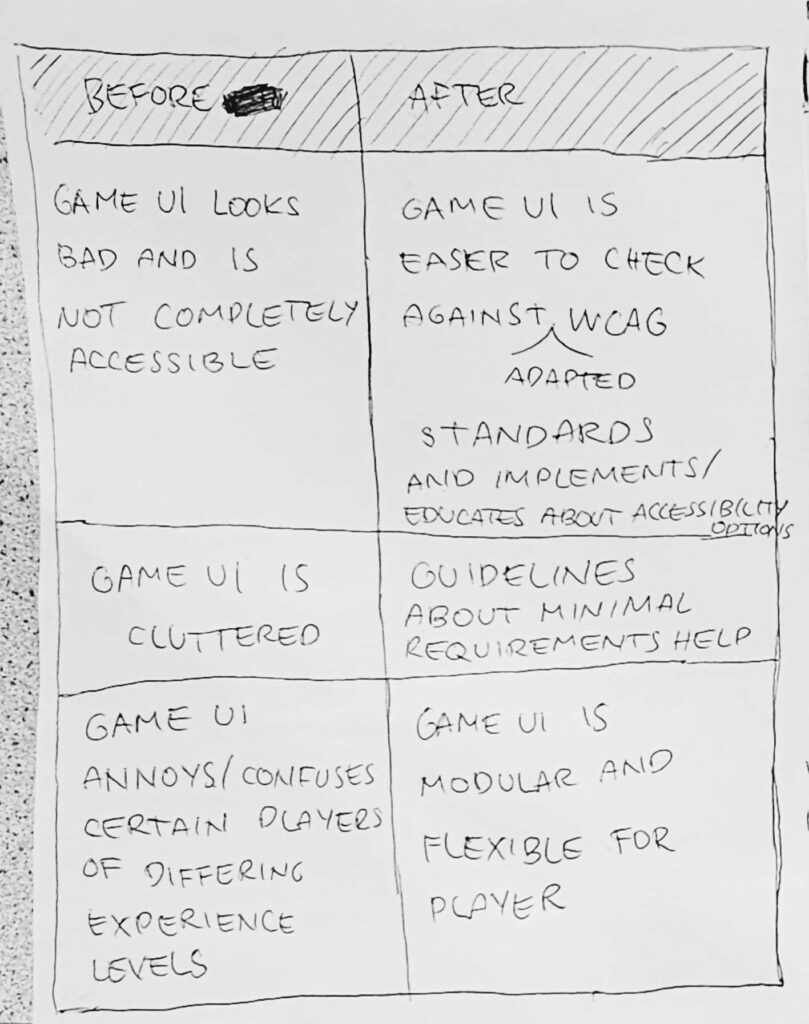 BEFORE
AFTER
GAME UI LOOKS
BAD AND IS
NOT COMPLETELY
ACCESSIBLE
GAME UI IS
EASER TO CHECK
AGAINST WCAG
ADAPTED
STANDARDS
AND IMPLEMENTS/
EDUCATES ABOUT ACCESSIBILITY
OPTIONS
GAME UI IS
CLUTTERED
GUIDELINES
ABOUT MINIMAL
REQUIREMENTS HELP
GAME UI
ANNOYS/CONFUSES
CERTAIN PLAYERS
OF DIFFERING
EXPERIENCE
LEVELS
GAME UI IS
MODULAR AND
FLEXIBLE FOR
PLAYER